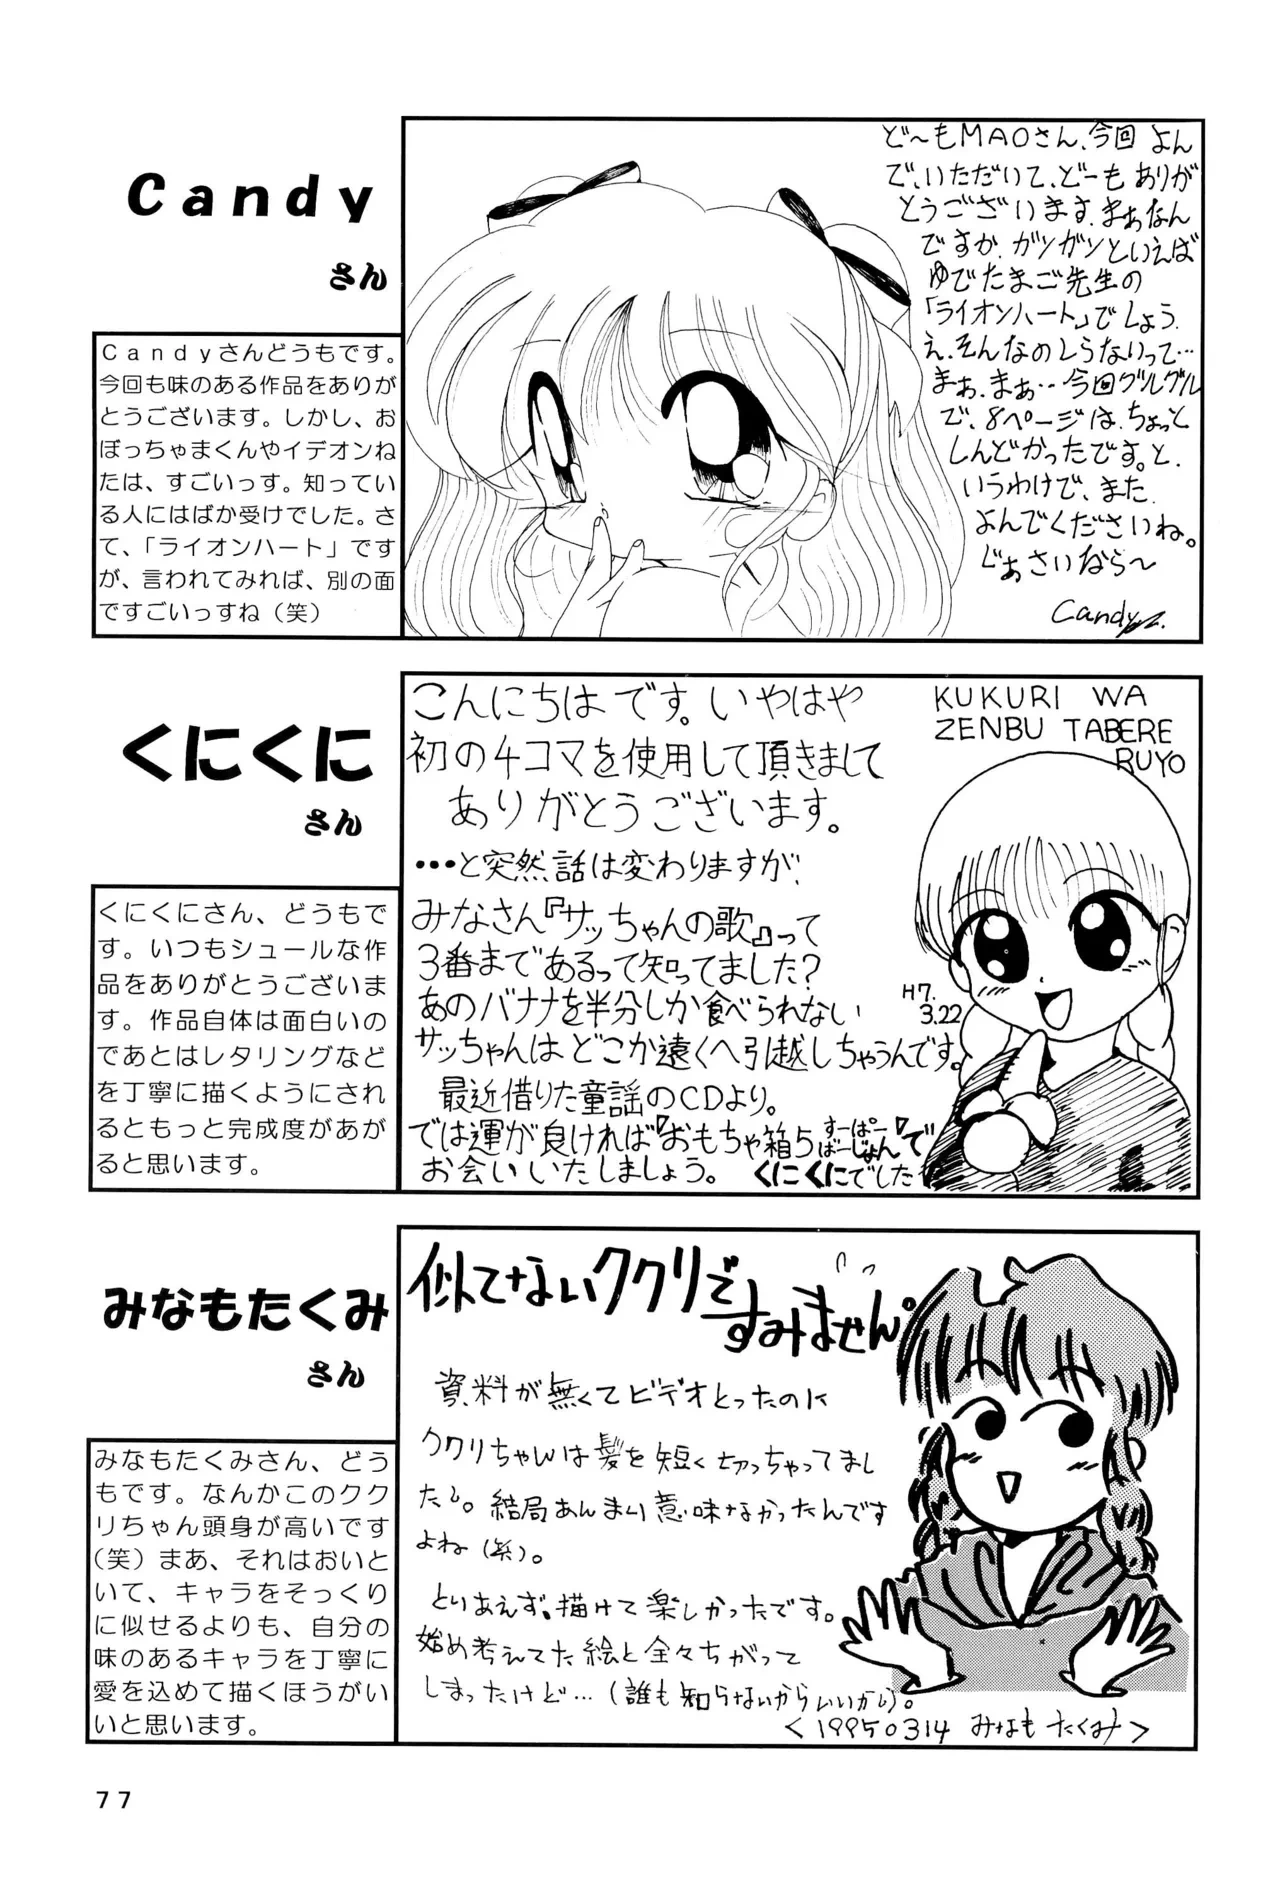 Candy
さん
Candyさんどうもです。
今回も味のある作品をありが
とうございます。しかし、お
ぼっちゃまくんやイデオンね
たは、すごいっす。知ってい
る人にはばか受けでした。さ
て、「ライオンハート」です
が、言われてみれば、別の面
ですごいっすね（笑）
ど〜もMAOさん、今回 よん
で、いただいて、どーも ありが
とうございます。まぁなん
ですか、ガンガンといえば
ゆでたまご先生の
「ライオンハート」でしょう。
え、そんなのしらないって…
まぁ、まぁ… 今回グルグル
で、8ページは、ちょっと
しんどかったです。と、
いうわけで、また
よんでくださいね。
じぁさいなら〜
Candy
くにくに
さん
くにくにさん、どうもで
す。いつもシュールな作
品をありがとうございま
す。作品自体は面白いの
であとはレタリングなど
を丁寧に描くようにされ
るともっと完成度があが
ると思います。
こんにちは です。いやはや
初の4コマを使用して頂きまして
ありがとうございます。
・・・と突然話は変わりますが、
みなさん『サッちゃんの歌』って
3番まであるって知ってました？
あのバナナを半分しか食べられない
サッちゃんは どこか遠くへ引越しちゃうんです。
最近借りた童謡のCDより。
では運が良ければ『おもちゃ箱5 すーぱーばーじょん』で
お会いいたしましょう。 くにくにでした
KUKURI WA
ZENBU TABERE
RUYO
H7.
3.22
みなもたくみ
さん
みなもたくみさん、どう
もです。なんかこのクク
リちゃん頭身が高いです
（笑）まあ、それはおいと
いて、キャラをそっくり
に似せるよりも、自分の
味のあるキャラを丁寧に
愛を込めて描くほうがい
いと思います。
似てないククリで
すみません。
資料が無くてビデオとったのに
ククリちゃんは髪を短く切っちゃってまし
たし。結局あんまり意味なかったんです
よね（笑）。
とりあえず、描けて楽しかったです。
始め考えてた絵と全々ちがって
しまったけど…（誰も知らないからいいから）。
＜19950314 みなもたくみ＞
77